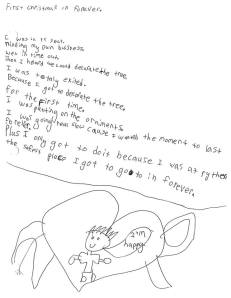 First christmas in Forever.
I was in it seat.
Minding my own business
well in time out.
Then I heard we could decorate the tree.
I was totaly exited.
Because I got to decorate the tree,
for the first time.
I was putting on the orniments
I was going how slow cause I the moment to last
forever.
Plus I only got to do it because I was at
the safest place I got to go to in forever.
I'm
happy